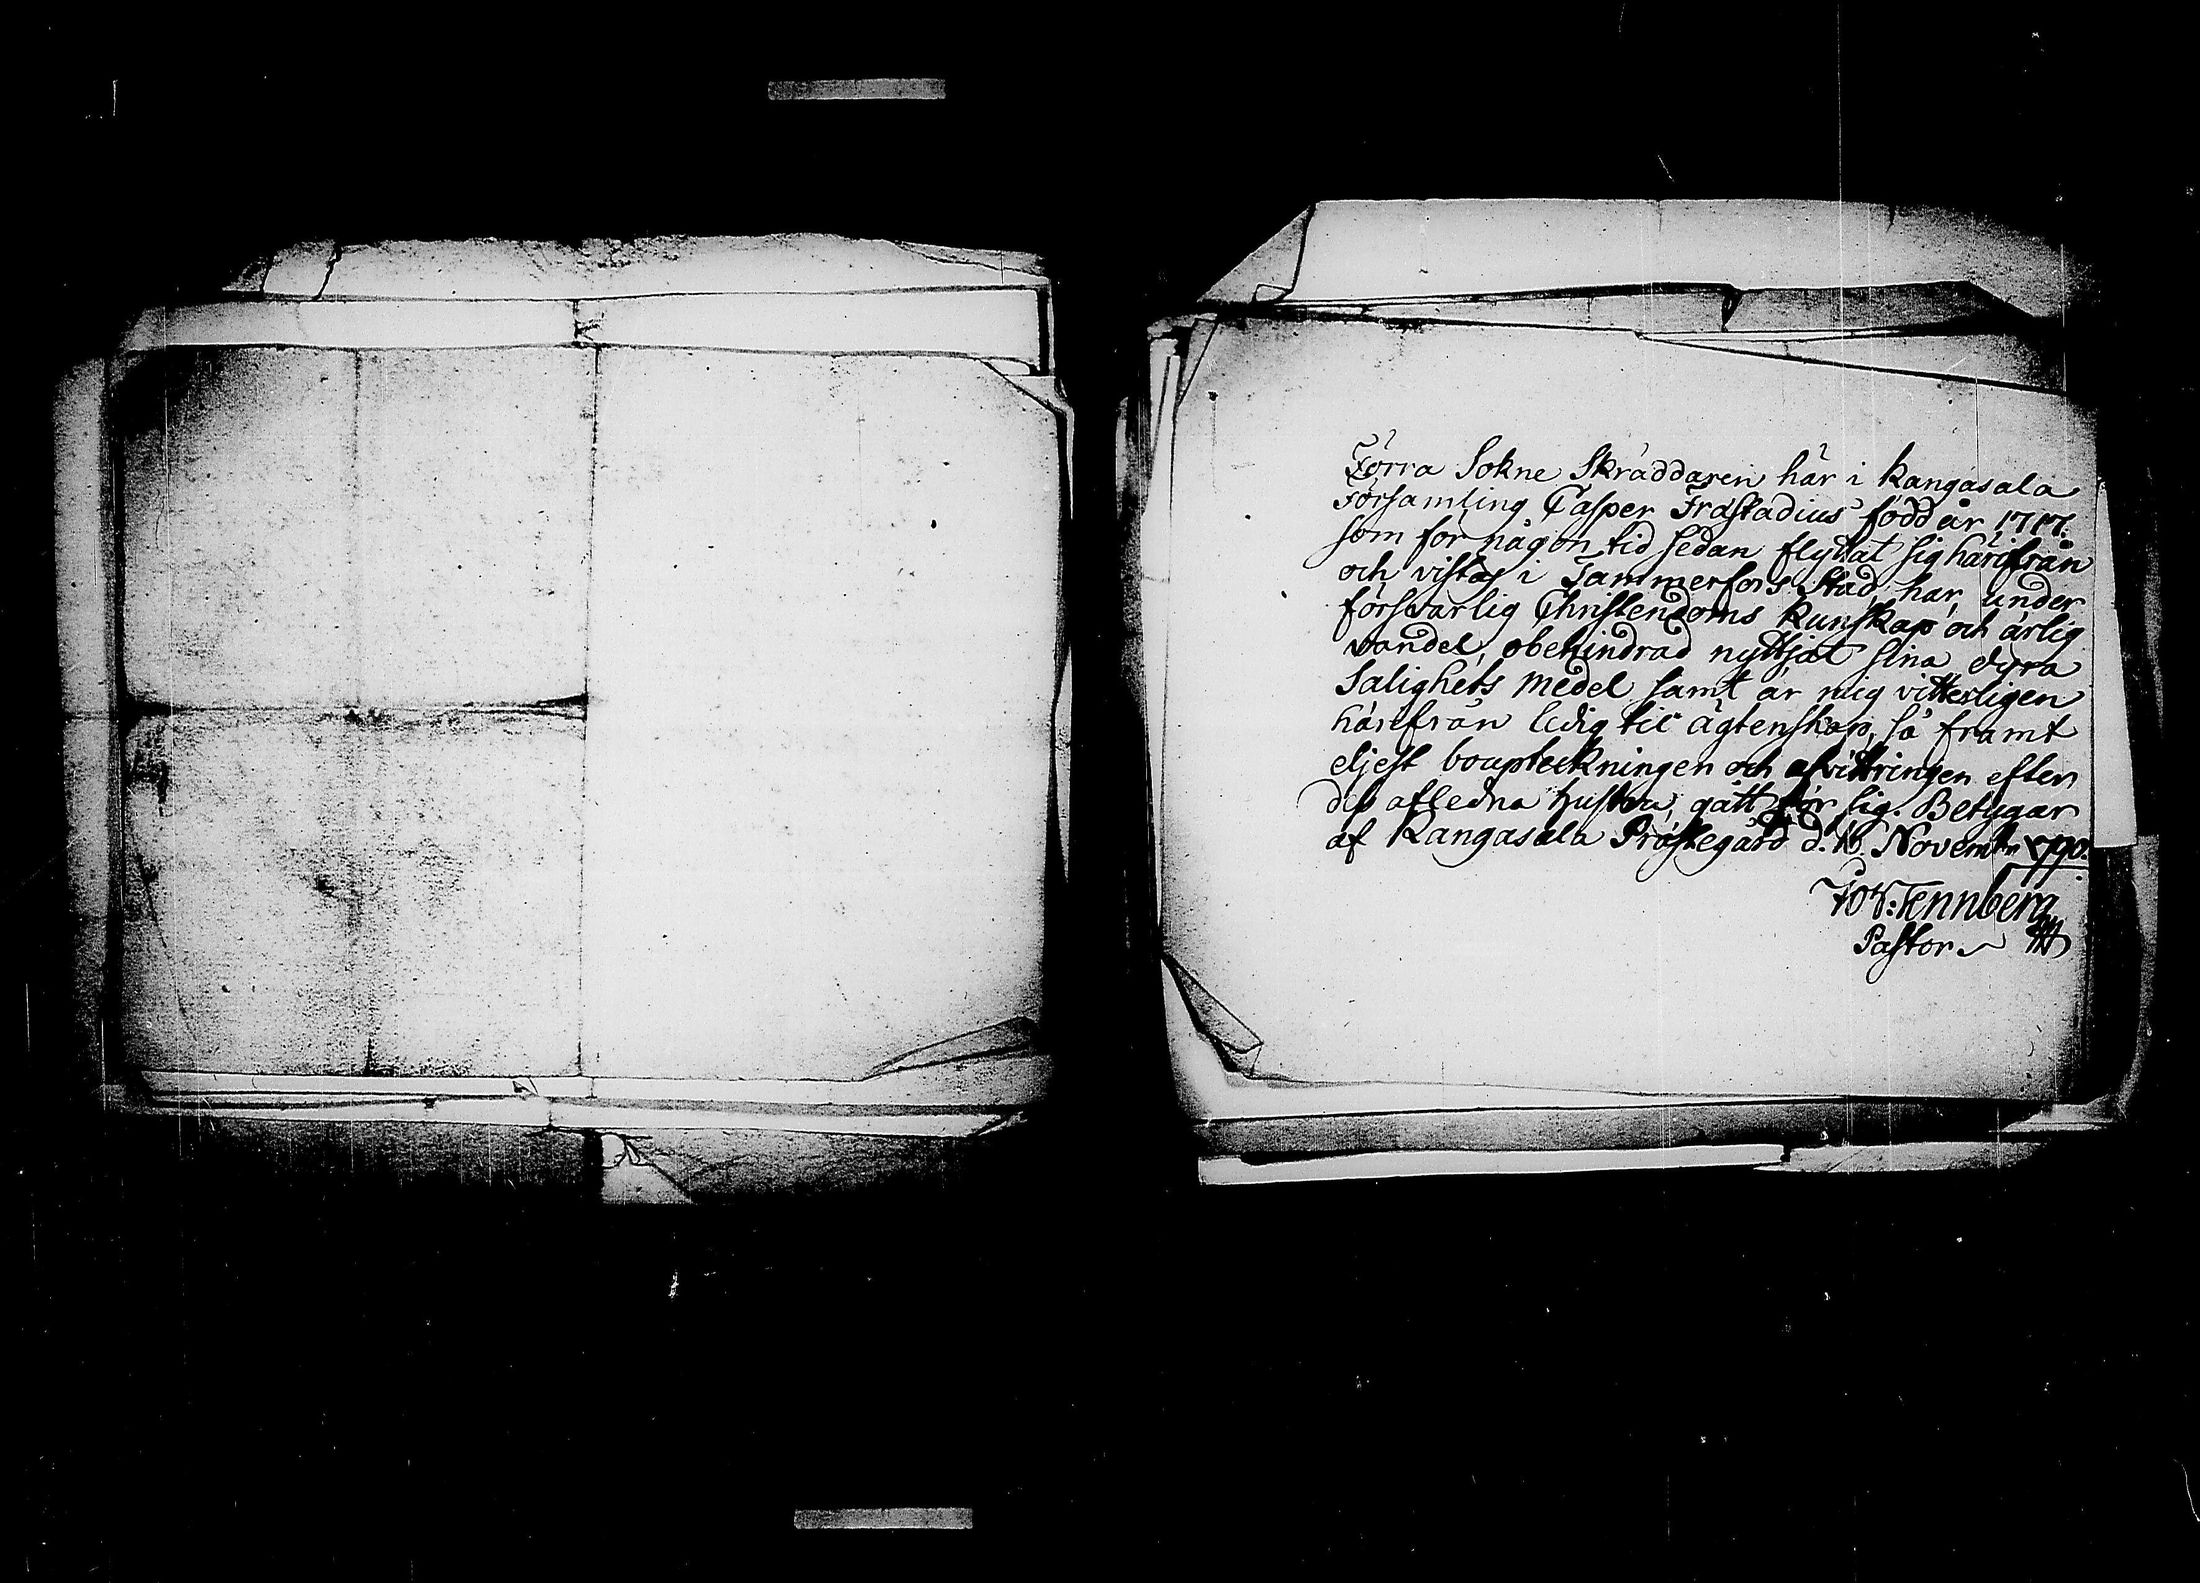 Förra Sokne Skräddaren här i Kangasala
Församling Casper Frastadius född år 1717.
som för någon tid sedan flyttat sig härifrån
och vistas i Tammerfors Stad, har under
försvarlig Christendoms Kunskap och ärlig
vandel, obehindrad nyttjat sina dyra
Salighets Medel samt är mig vitterligen
härifrån ledig til ägtenskap, så framt
eljest bouptekningen och afvittringen efter
dess afledna hustru gått för sig. Betygar
af Kangasala Prästegård d. 16 Novembr 1790.
Tennberg
Pastor